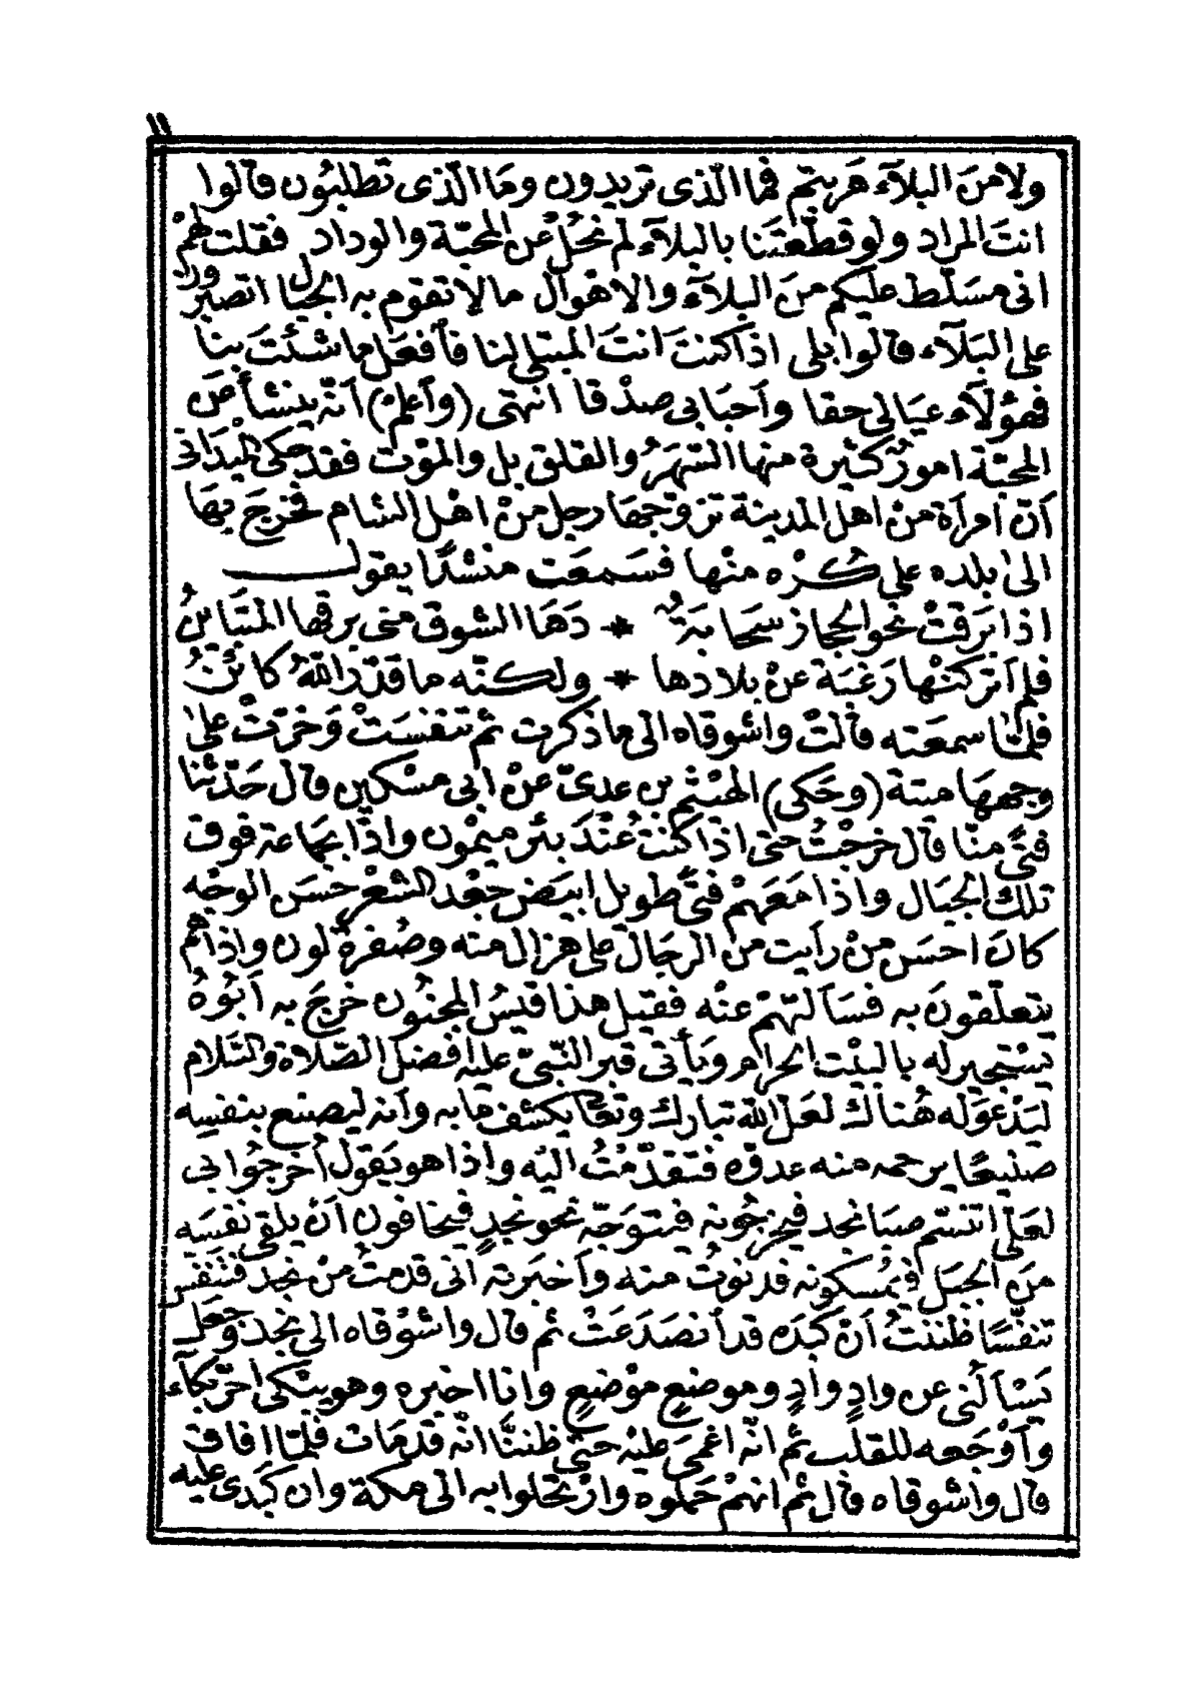 ١١
ولا منَ البلآء هَربتم فما الذى تريدون ومَا الّذى تطلبُون قالوا
انتَ المراد ولو قطّعْتَنا بالبلآء لم نحُلْ عن المحبّة والوداد فقلت لهُمْ
انى مسَلّط عليكم منَ البلآء والاهْوال مالا تقوم به الجبال اتصبرون
على البَلآء قالوا بلى اذا كنتَ انتَ المبتلى لنا فٱفعَل ما شئتَ بنا
فهؤلآء عبَادى حقا وأحبَابى صدْقا انتهى (وٱعلم) أنّه ينشأ عن
المحبّة امورٌ كثيرة منها السّهَرُ والقلق بل والموْت فقد حكى المْيدَانى
أنّ ٱمرأة منْ اهل المدينة تزوجهَا رجل منْ اهْل الشام فخرجَ بهَا
الى بلده على كُرْه منْها فسَمعَت منْشدًا يقول
اذا بَرقتْ نحو الحجاز سَحَابَةٌ * دَعَا الشوق منى برقها المتيَامِنُ
فلم أتركنْها رَغبَة عنْ بلادها * ولكنّه ما قدّر اللّهُ كائنُ
فلمّا سمعَته قالتْ واشوقاه الى ما ذكرت ثم تنفسَتْ وَخرّتْ على
وجهها ميتة (وحَكى) الهَيْثم بن عدىّ عنْ ابى مسْكين قال حَدّثنا
فتًى منّا قال خرجْتُ حتى اذا كنتُ عنْدَ بئر ميْمُون واذا بجَاعة فوق
تلك الجبَال واذا مَعَهمْ فتًى طويل ابيَض جعْد الشعْر حسَن الوجْه
كانَ احسَن منْ رأيت من الرجال على هزال منه وصُفرة لون واذا هُم
يتعلّقونَ به فسَألتهمْ عنْه فقيل هذا قيسُ المجنُون خرجَ به أبُوهُ
يَسْتجير له بالبيْت الحرام ويأتى قبر النّبىّ عليه افضل الصّلاة والسّلام
ليَدْعوَ له هُناك لعَل الله تبارك وتعَالى يكشف مَا به وأنه ليصنع بنفسه
صنيعًا يرحمه منه عدوّه فتقدّمْتُ اليْه واذا هو يَقول أخرجُوا بى
لعَلى اتنسّم صبَا نجد فيخرجُونه فيتوَجّه نحو نجدٍ فيخافون أنْ يلقى نفسَه
منَ الجبَل فيُمسكونه فدنوْتُ منه وأخبَرته انى قدمتُ منْ نجد فتنفس
تنفّسًا ظننتُ أنّ كبَدَه قد ٱنصَدَعَتْ ثم قال واشوْقاه الى نجد وجعَل
يَسْألُنى عن وادٍ وادٍ وموضعٍ موْضعٍ وانا اخبره وهو يبْكى احرّ بكَآء
وأوْجَعه للقلب ثم انّه اغمىَ عليْه حتّى ظننّا انّه قد مات فلمّا افاق
قال واشوقاه قال ثم انهمْ حَملوه وارْتحلوا به الى مكة وان كبَدى عليه